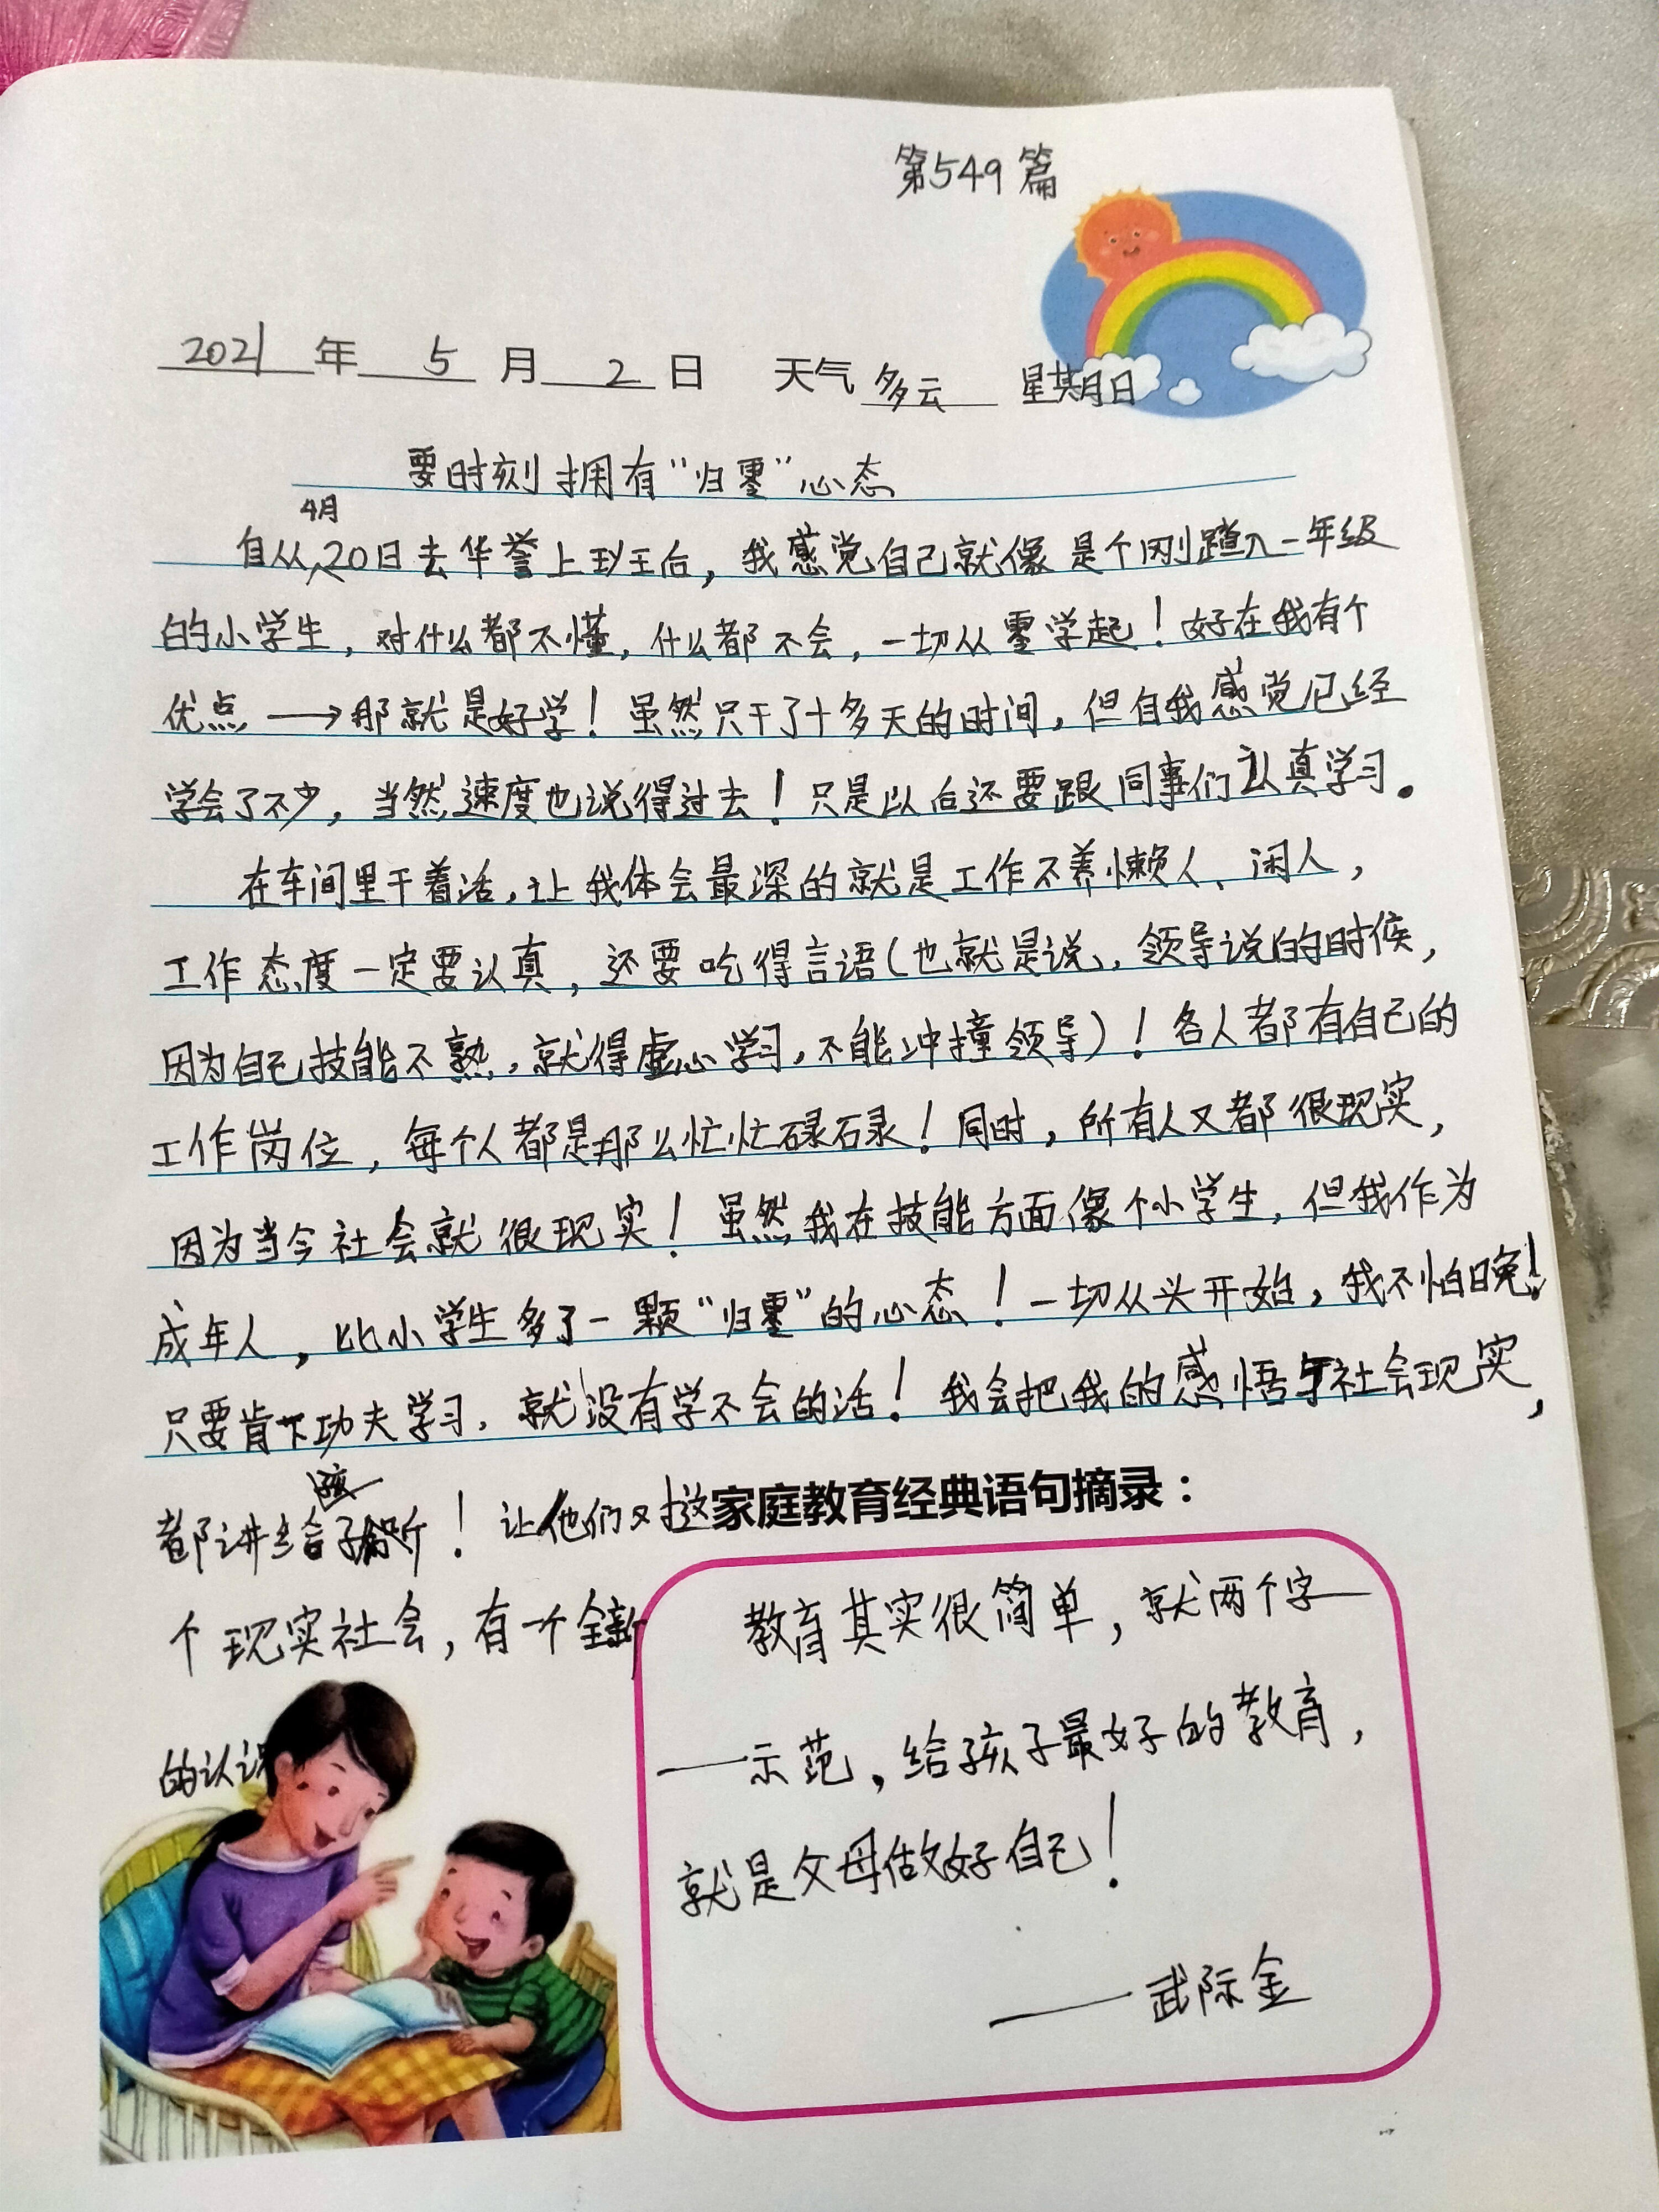 第549篇
2021年5月2日 天气多云 星期日
要时刻拥有“归零”心态
自从4月20日去华誉上班后，我感觉自己就像是个刚踏入一年级
的小学生，对什么都不懂，什么都不会，一切从零学起！好在我有个
优点→那就是好学！虽然只干了十多天的时间，但自我感觉已经
学会了不少，当然速度也说得过去！只是以后还要跟同事们认真学习。
在车间里干着活，让我体会最深的就是工作不养懒人、闲人，
工作态度一定要认真，还要吃得言语（也就是说，领导说的时候，
因为自己技能不熟，就得虚心学习，不能冲撞领导）！各人都有自己的
工作岗位，每个人都是那么忙忙碌碌！同时，所有人又都很现实，
因为当今社会就很现实！虽然我在技能方面像个小学生，但我作为
成年人，比小学生多了一颗“归零”的心态！一切从头开始，我不怕晚！
只要肯下功夫学习，就没有学不会的活！我会把我的感悟与社会现实，
都讲给孩子听！让他们对这
个现实社会，有一个全新
的认识
家庭教育经典语句摘录：
教育其实很简单，就两个字一
一示范，给孩子最好的教育，
就是父母做好自己！
——武际金